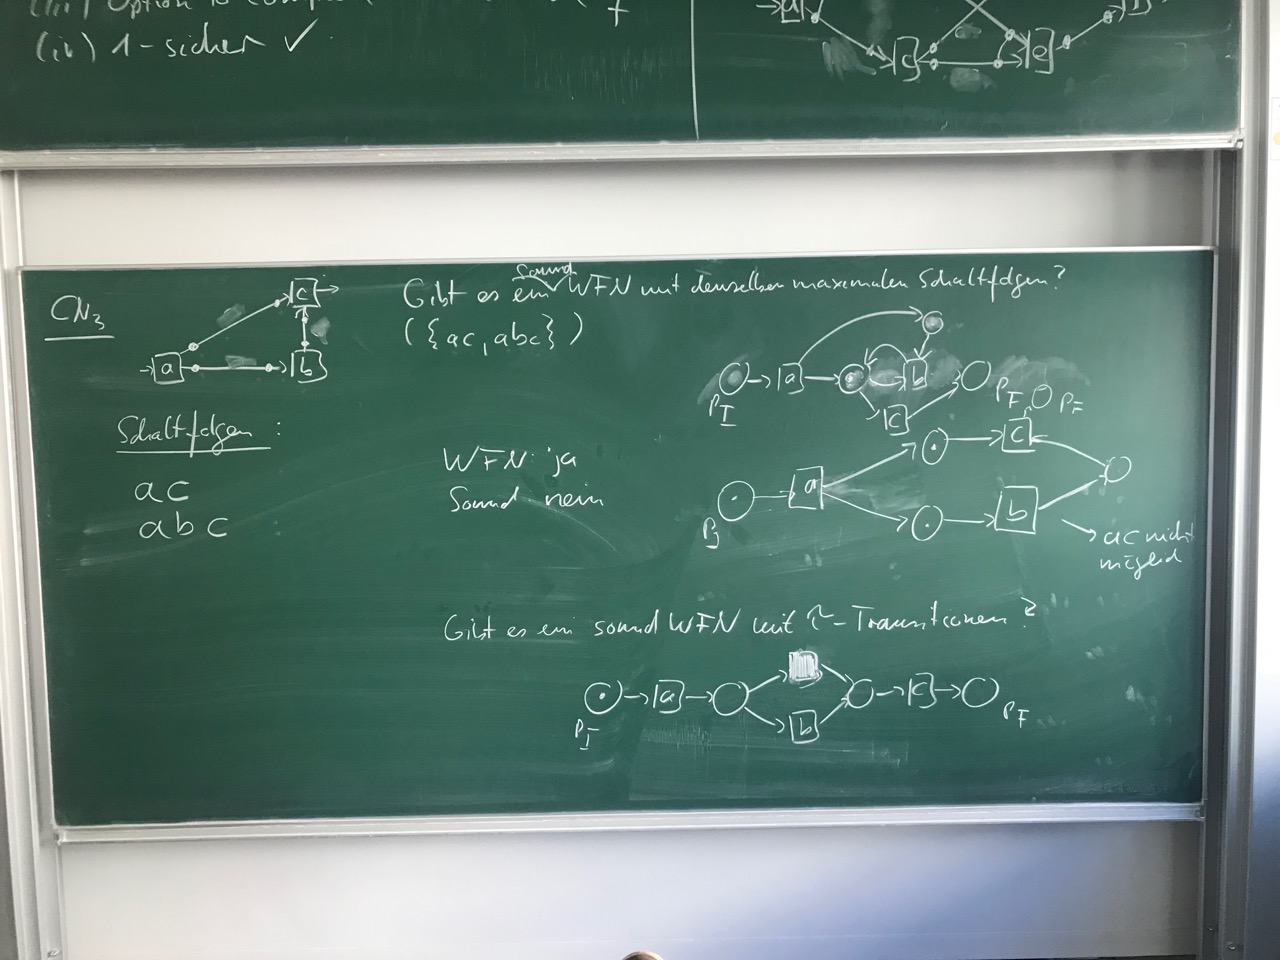 (iii) Option to
(iv) 1-sicher ✓
a
c
e
CN₃
a
c
b
Schaltfolgen :
ac
abc
Gibt es ein sound WFN mit denselben maximalen Schaltfolgen?
({ac, abc})
WFN: ja
Sound nein
a
b
c
P_I
P_F
P_F
a
c
b
ac nicht
möglich
Gibt es ein sound WFN mit τ-Transitionen?
P_I
a
b
c
P_F